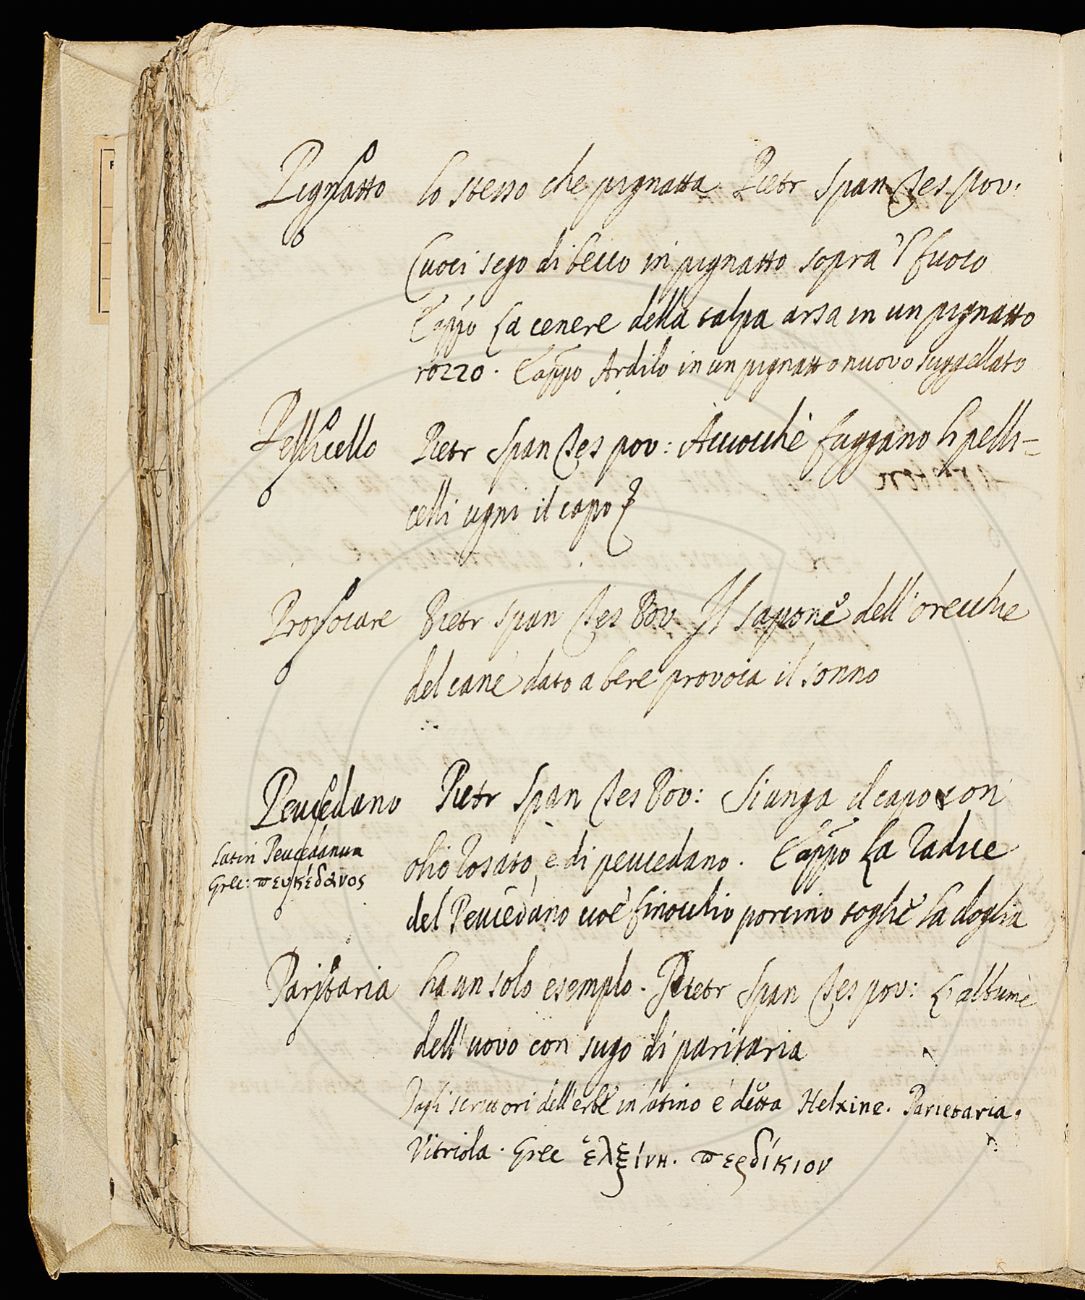 Pignatto lo stesso che pignatta Pietr Span Tes pov:
Cuoci sego di becco in pignatto sopra 'l fuoco
Cappo La cenere della talpa arsa in un pignatto
rozzo. Cappo Ardilo in un pignatto nuovo suggellato
Pellicello Pietr Span Tes pov: Acciocchè fuggano li pelli=
celli ugni il capo
Provocare Pietr Span Tes Pov Il sapone dell'orecchie
del cane dato a bere provoca il sonno
Peucedano Pietr Span Tes Pov: Si unga il capo con
Latin Peucedanum
olio rosato, e di peucedano. Cappo La radice
Grec: πευκέδανος
del Peucedano cioè finocchio porcino toglie la doglia
Paritaria ha un solo esempio. Pietr Span Tes pov: L'albume
dell'uovo con sugo di paritaria
Dagli scrittori dell'erbe in latino è detta Helxine. Parietaria.
Vitriola. Grec ἑλξίνη. περδίκιον